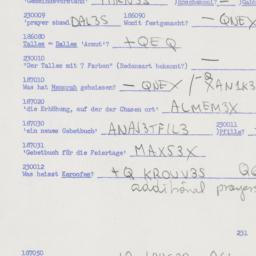 230009 186090
'prayer stand DAL3S Womit festgemacht? — QNEX
186080
Talles = Halles 'Armut'? +QEQ
230010
'Der Talles mit 7 Farben' (Redensart bekannt?) —
187010
Was hat Menorah geheissen? — QNEX
187020
'die Erhöhung, auf der der Chasen ort' ALMEM3X
187030 230011
'ein neues Gebetbuch' ANAI3TFIL3
187031
'Gebetbuch für die Feiertage' MAXS3X
230012
Was heisst Karoofes? +Q KROUV3S
additional prayers
231
187050